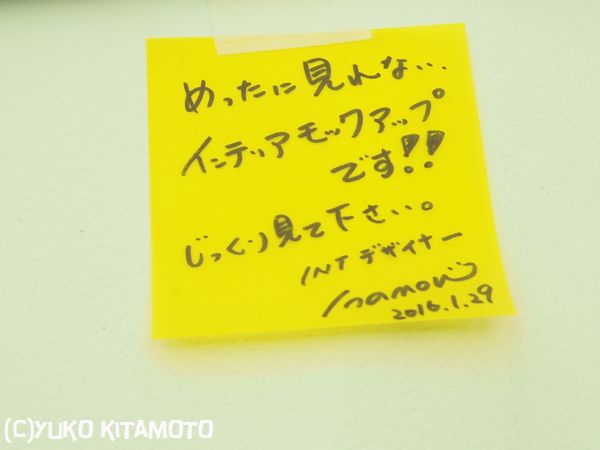 めったに見れない…
インテリアモックアップ
です!!
じっくり見て下さい。
INTデザイナー
2016.1.29
(C)YUKO KITAMOTO